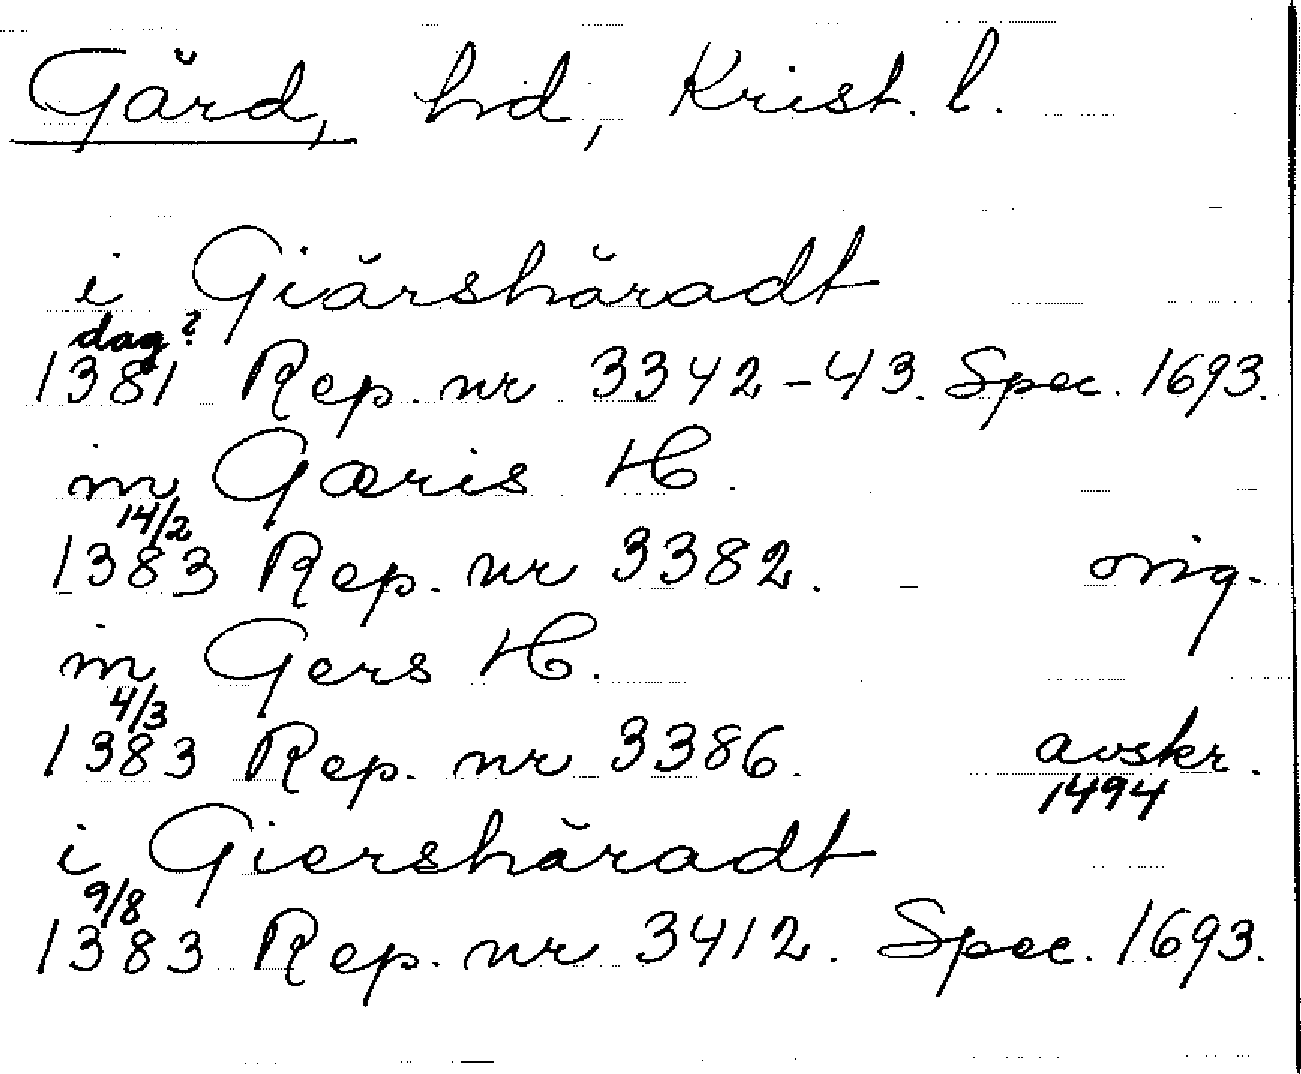 Gärd, hd, Krist. l.
i Giärshäradt
dag?
1381 Rep. nr 3342-43. Spec. 1693.
in Gæris H.
14/2
1383 Rep. nr 3382. orig.
in Gers H.
4/3
1383 Rep. nr 3386. avskr.
1494
i Giershäradt
9/8
1383 Rep. nr 3412. Spec. 1693.